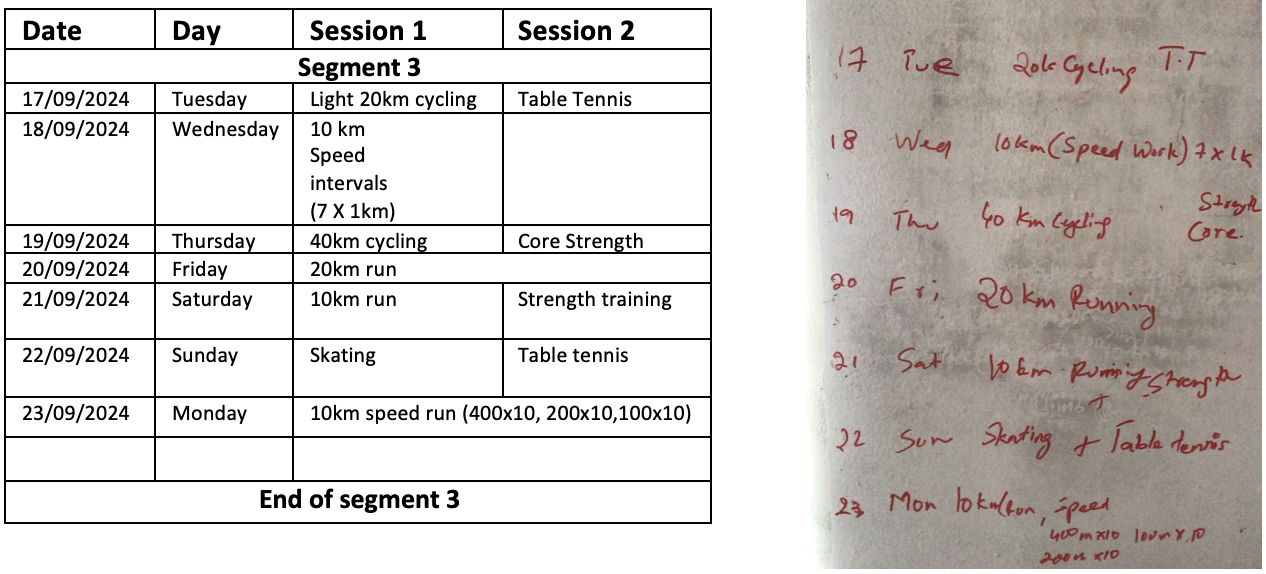 Date Day Session 1 Session 2
Segment 3
17/09/2024 Tuesday Light 20km cycling Table Tennis
18/09/2024 Wednesday 10 km
Speed
intervals
(7 X 1km)
19/09/2024 Thursday 40km cycling Core Strength
20/09/2024 Friday 20km run
21/09/2024 Saturday 10km run Strength training
22/09/2024 Sunday Skating Table tennis
23/09/2024 Monday 10km speed run (400x10, 200x10,100x10)
End of segment 3
17 Tue 20k Cycling T.T
18 Wed 10km (Speed Work) 7 x 1K
19 Thu 40 km Cycling Strength
Core.
20 Fri, 20 km Running
21 Sat 10 km Running + Strength
22 Sun Skating + Table tennis
23 Mon 10km run, Speed
400m x10 100m x 10
200m x10